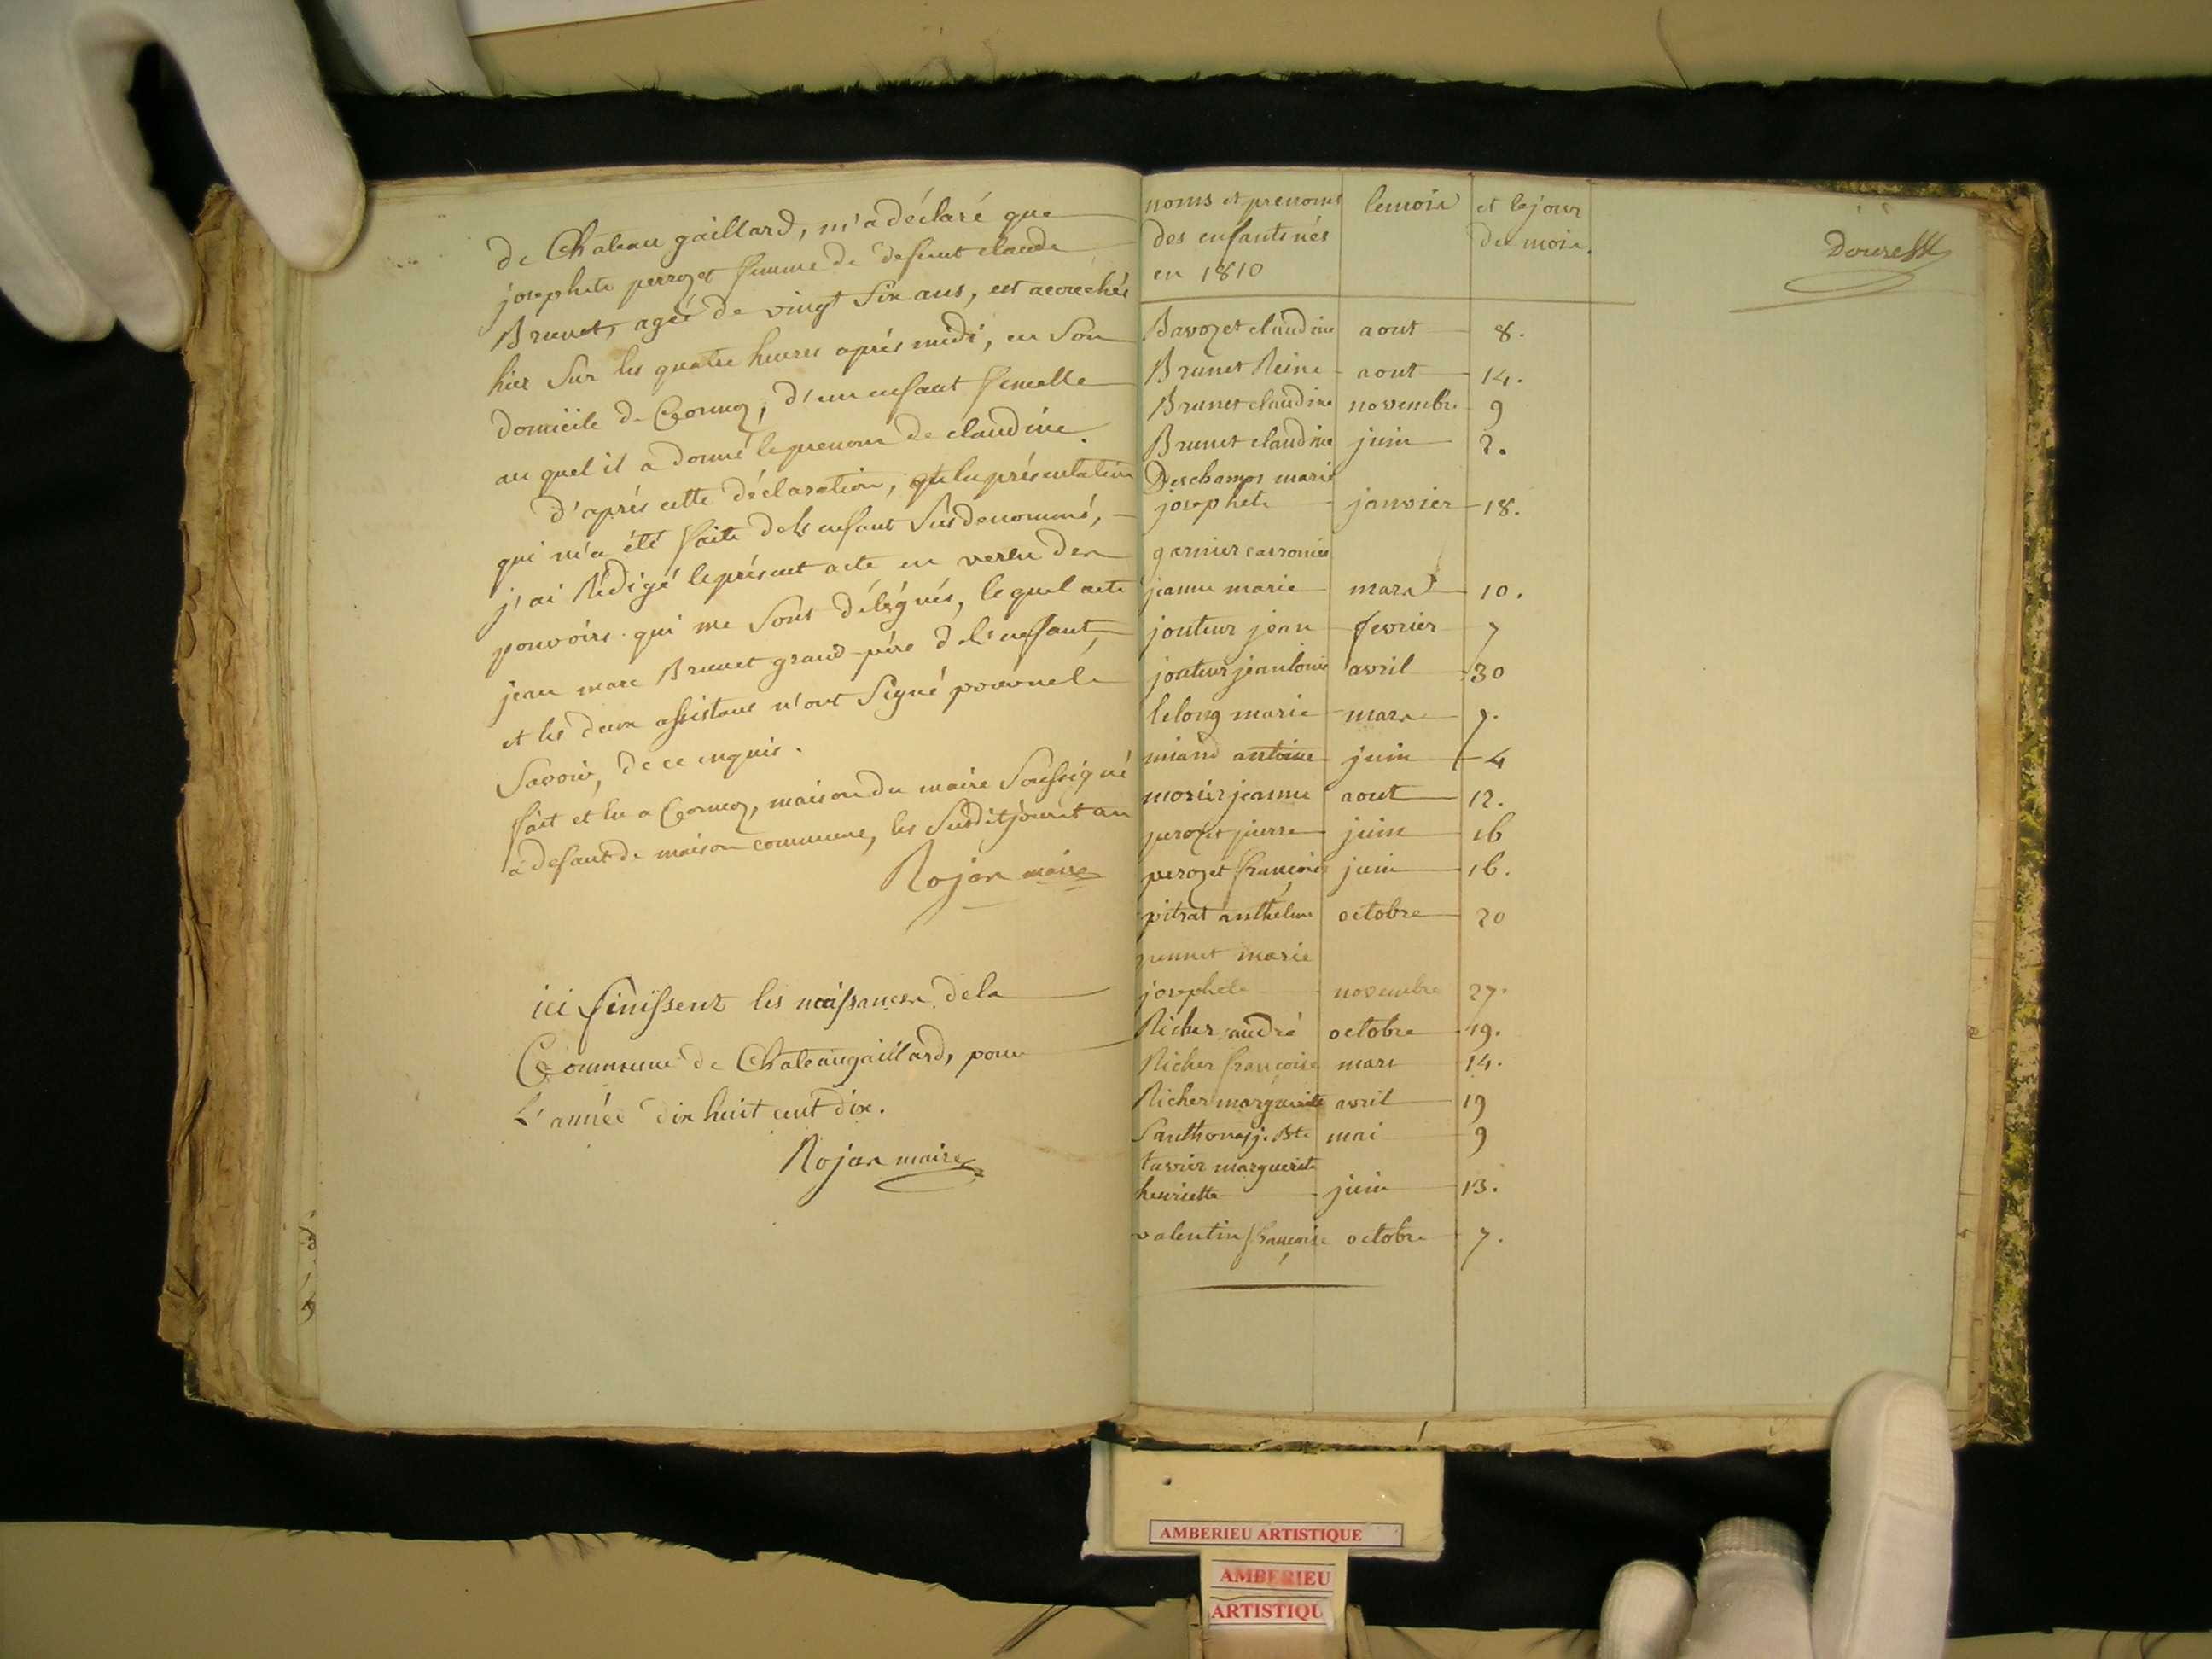 de Chateau gaillard, m'a déclaré que
josephete perrozet femme de defunt claude
Brunet, agée de vingt six ans, est acouchée
hier sur les quatre heures aprés midi, en son
domicile de Cormoz, d'un enfant femelle
au quel il a donné le prenom de claudine.
d'aprés cette déclaration, et la présentation
qui m'a été faite de l'enfant susdenommé,
j'ai rédigé le présent acte en vertu des
pouvoirs qui me sont délégués, lequel acte
jean marc Brunet grand-pére de l'enfant,
et les deux assistans n'ont signé pour ne le
savoir, de ce enquis.
fait et lu a Cormoz, maison du maire soussigné
à defaut de maison commune, les susdit jour et an
Rojon maire
ici finissent les naissances de la
Commune de Chateaugaillard, pour
L'année dix huit cent dix.
Rojon maire
noms et prenoms | le mois | et le jour
des enfants nés | du mois.
en 1810
Bavozet claudine | aout | 8.
Brunet Reine | aout | 14.
Brunet claudine | novembre | 9
Brunet claudine | juin | 2.
Deschamps marie
josephete | janvier | 18.
garnier
jeanne marie | mars | 10.
jouteur jean | fevrier | 7
jouteur jean louis | avril | 30
lelong marie | mars | 7.
miand antoine | juin | 4
morier jeanne | aout | 12.
perozet pierre | juin | 16
perozet françois | juin | 16.
pitrat anthelme | octobre | 20
marie
josephete | novembre | 27.
Richer andré | octobre | 19.
Richer françoise | mars | 14.
Richer marguerite | avril | 19
Santhonax j. Bte | mai | 9
tavier marguerite
henriette | juin | 13.
valentin françoise | octobre | 7.
AMBERIEU ARTISTIQUE
AMBERIEU
ARTISTIQU